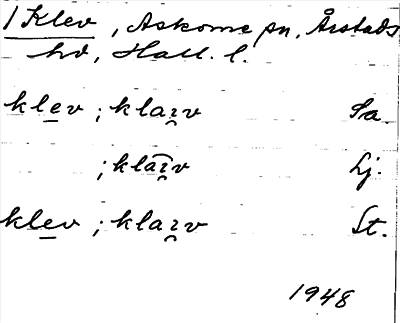 1 Klev, Askome sn, Årstads
hd, Hall. l.
klev ; klaɪ̯v Sa.
; klaɪ̯v Lj.
klev ; klaɪ̯v St.
1948